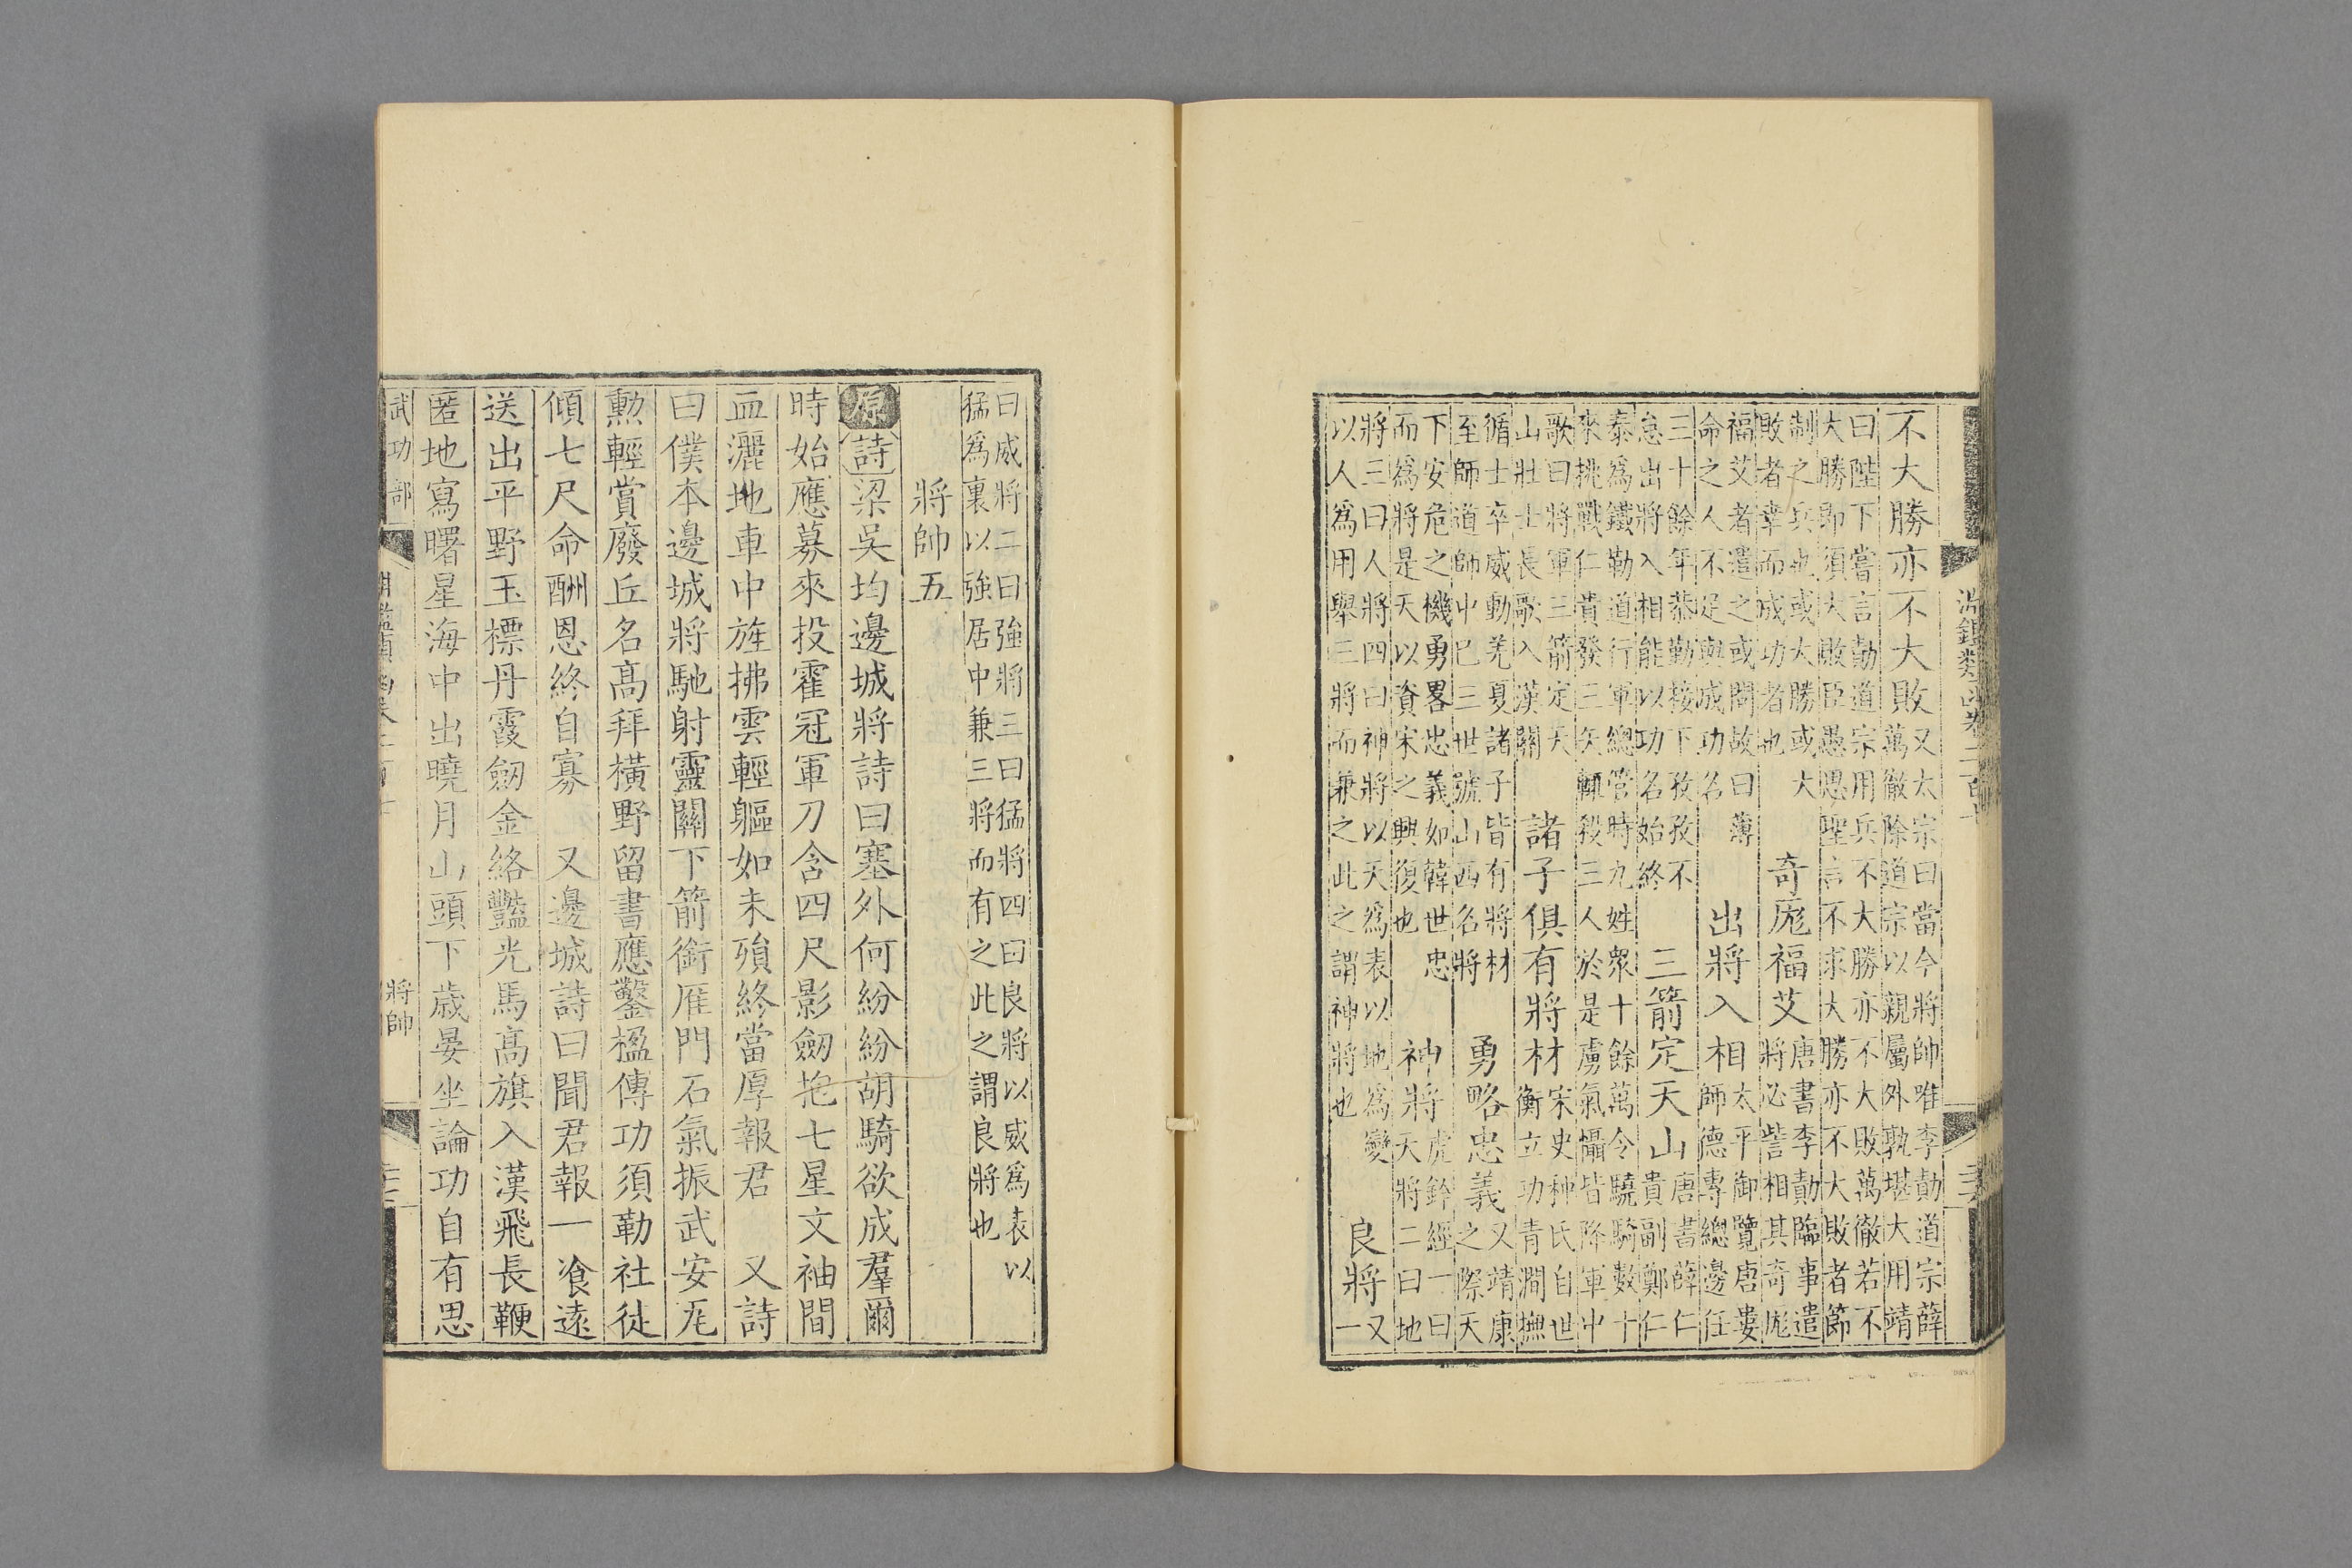 淵鑑類函卷二百十
不大勝亦不大敗又太宗曰當今將帥唯李勣道宗薛
萬徹除道宗以親屬外孰堪大用靖
曰陛下嘗言勣道宗用兵不大勝亦不大敗萬徹若不
大勝即須大敗臣愚思聖言不求大勝亦不大敗者節
制之兵也或大勝或大
敗者幸而成功者也
奇厖福艾唐書李勣臨事遣
將必訾相其奇厖
福艾者遣之或問故曰薄
命之人不足與成功名
出將入相太平御覽唐婁
師德專總邊任
三十餘年恭勤接下孜孜不
怠出將入相能以功名始終
三箭定天山唐書薛仁
貴副鄭仁
泰爲鐵勒道行軍總管時九姓衆十餘萬令驍騎數十
來挑戰仁貴發三矢輒殺三人於是虜氣懾皆降軍中
歌曰將軍三箭定天
山壯士長歌入漢關
諸子俱有將材宋史种氏自世
衡立功青澗撫
循士卒威動羌夏諸子皆有將材
至師道師中已三世號山西名將
勇略忠義又靖康
之際天
下安危之機勇畧忠義如韓世忠
而爲將是天以資宋之興復也
神將虎鈐經一曰
天將二曰地
將三曰人將四曰神將以天爲表以地爲變
以人爲用舉三將而兼之此之謂神將也
良將又
一
曰威將二曰強將三曰猛將四曰良將以威爲表以
猛爲裏以強居中兼三將而有之此之謂良將也
將帥五
原詩梁吳均邊城將詩曰塞外何紛紛胡騎欲成羣爾
時始應募來投霍冠軍刀含四尺影劒抱七星文袖間
血灑地車中旌拂雲輕軀如未殞終當厚報君　又詩
曰僕本邊城將馳射靈關下箭銜雁門石氣振武安瓦
勲輕賞廢丘名髙拜橫野留書應鑿楹傳功須勒社徒
傾七尺命酬恩終自寡　又邊城詩曰聞君報一飡遠
送出平野玉標丹霞劒金絡豔光馬髙旗入漢飛長鞭
匿地寫曙星海中出曉月山頭下歲晏坐論功自有思
武功部　將帥